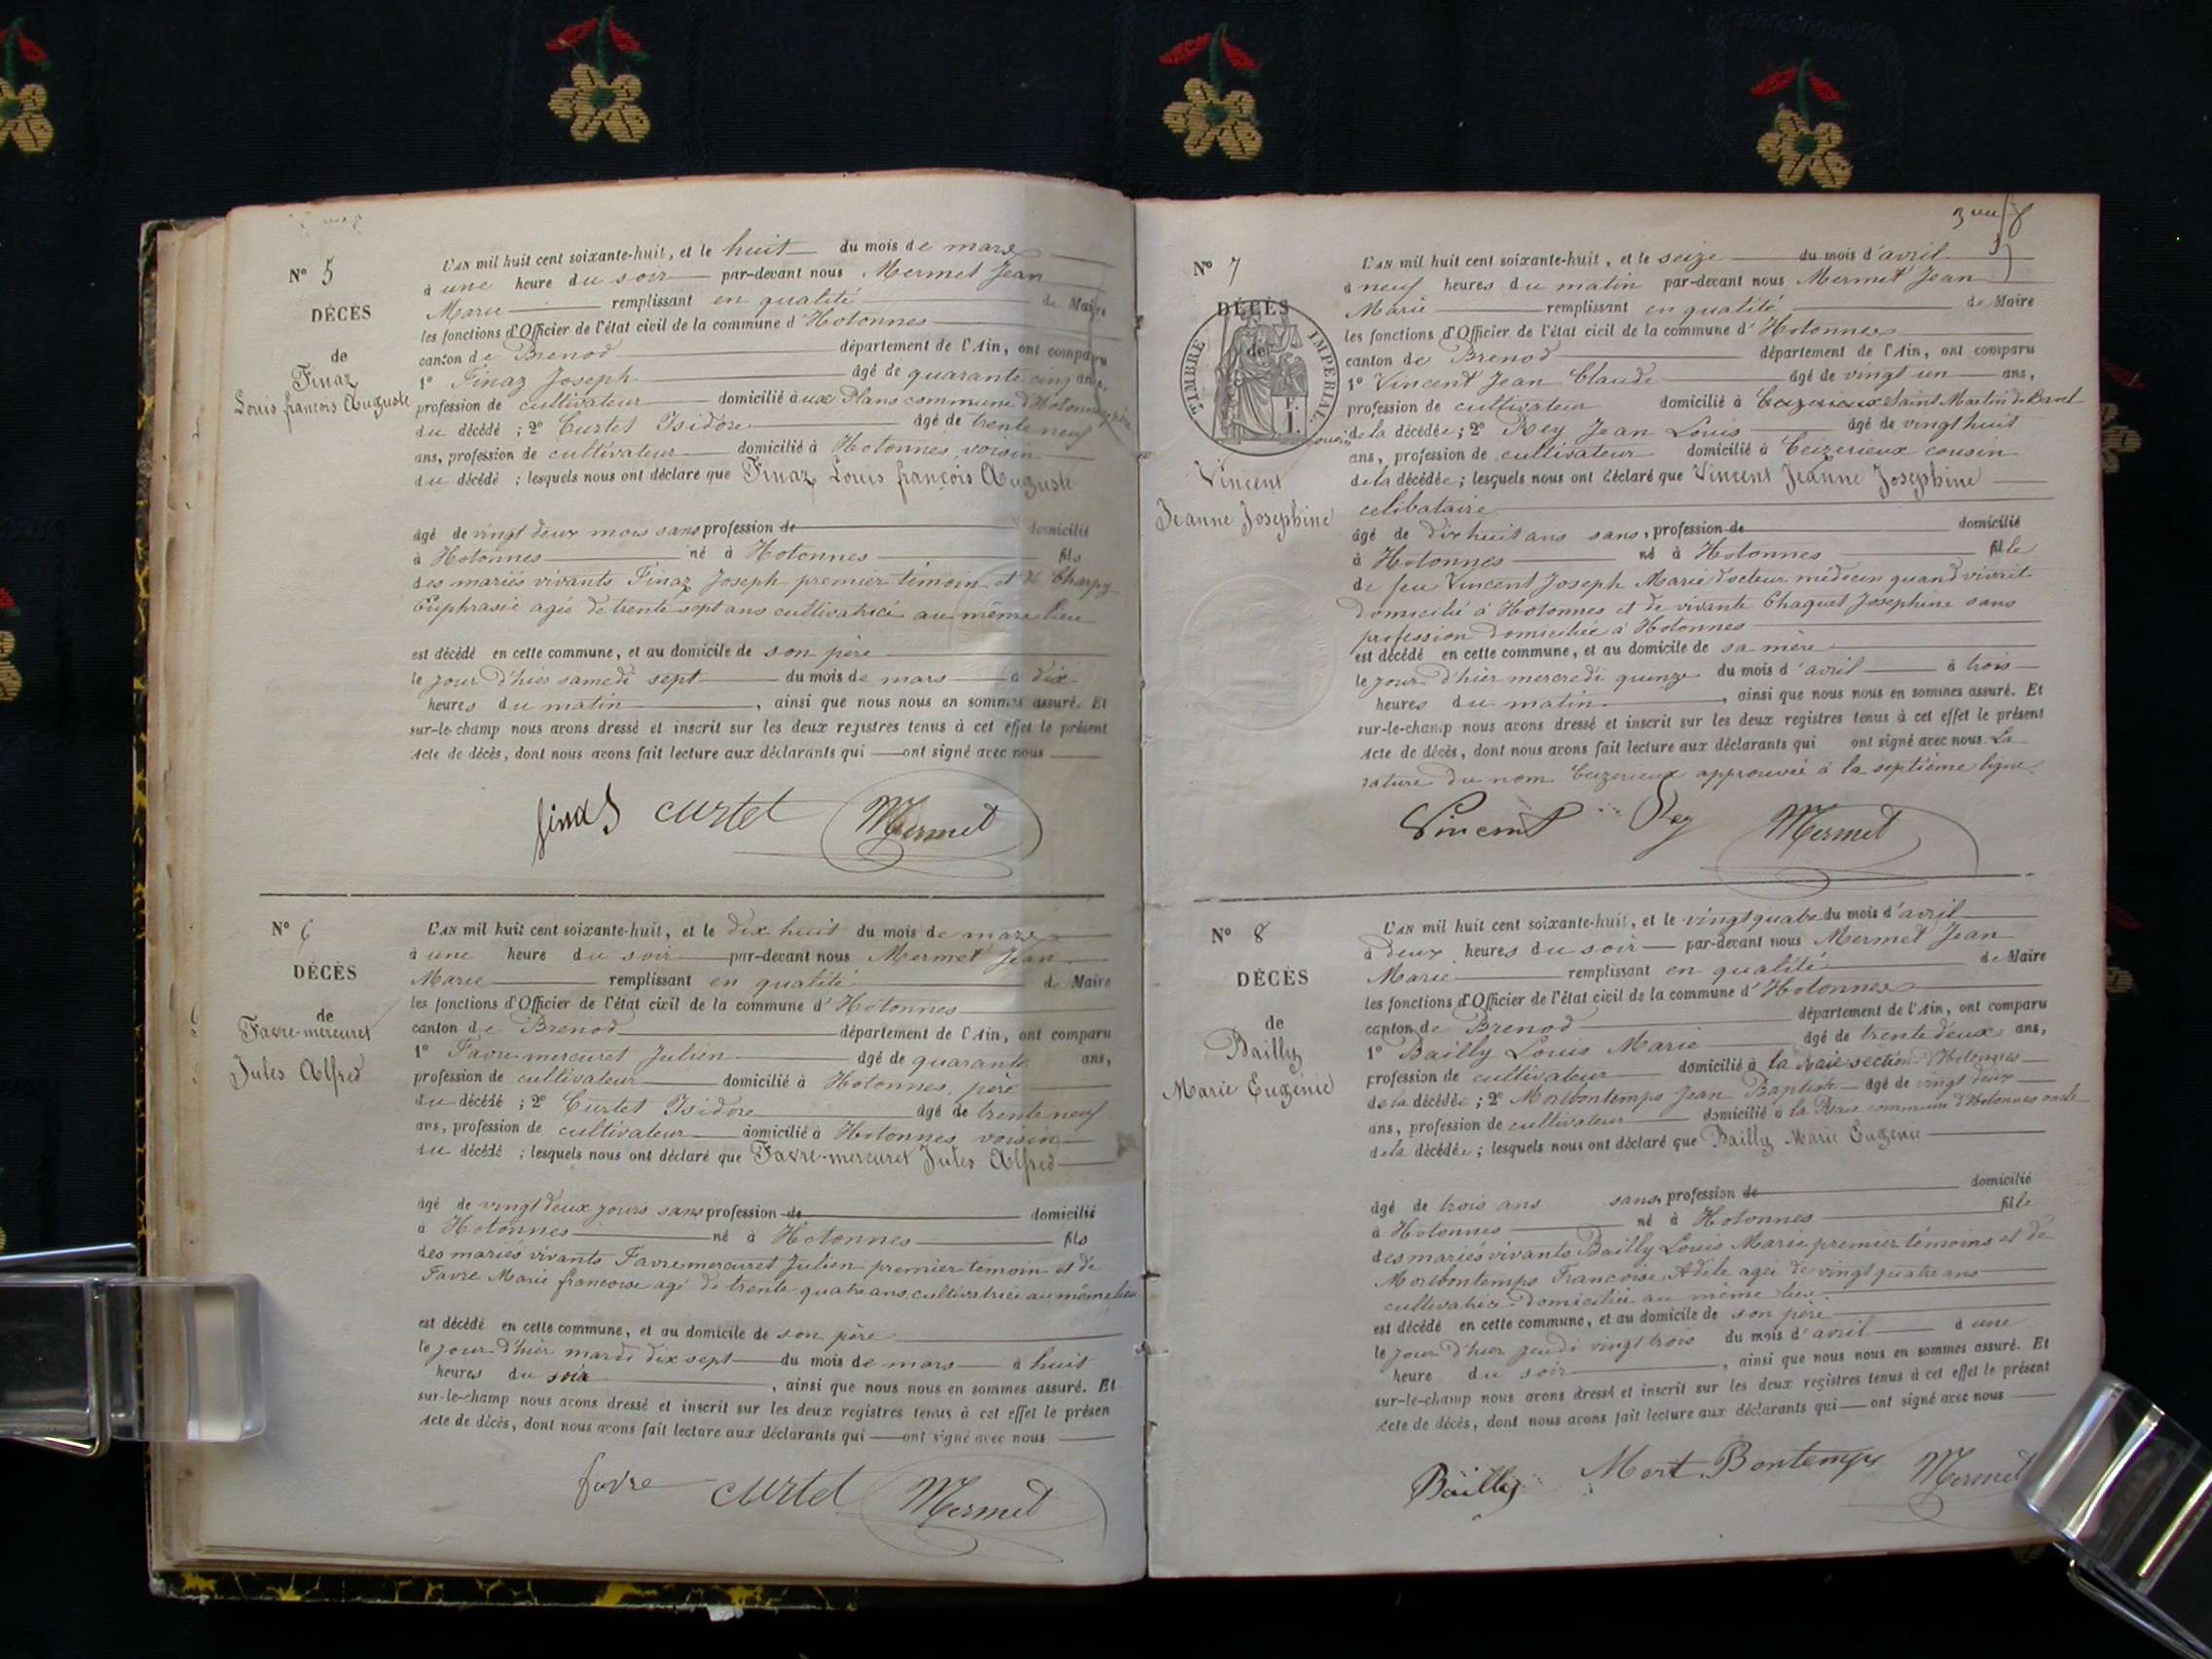 N° 5
DÉCÈS
de
Finaz
Louis françois Auguste
L'AN mil huit cent soixante-huit, et le huit du mois de mars
à une heure du soir par-devant nous Mermet Jean
Marie remplissant en qualité de Maire
les fonctions d'Officier de l'état civil de la commune d'Hotonnes
canton de Brenod département de l'Ain, ont comparu
1° Finaz Joseph âgé de quarante cinq ans,
profession de cultivateur domicilié à aux Plans commune d'Hotonnes père
du décédé ; 2° Curtet Isidore âgé de trente neuf
ans, profession de cultivateur domicilié à Hotonnes, voisin
du décédé ; lesquels nous ont déclaré que Finaz Louis françois Auguste
âgé de vingt deux mois sans profession de domicilié
à Hotonnes né à Hotonnes fils
des mariés vivants Finaz Joseph premier témoin et de Charpy
Euphrasie agée de trente sept ans cultivatrice au même lieu
est décédé en cette commune, et au domicile de son père
le jour d'hier samedi sept du mois de mars à dix
heures du matin, ainsi que nous nous en sommes assuré. Et
sur-le-champ nous avons dressé et inscrit sur les deux registres tenus à cet effet le présent
Acte de décès, dont nous avons fait lecture aux déclarants qui ont signé avec nous
finas curtet Mermet
N° 6
DÉCÈS
de
Favre-mercuret
Jules Alfred
L'AN mil huit cent soixante-huit, et le dix huit du mois de mars
à une heure du soir par-devant nous Mermet Jean
Marie remplissant en qualité de Maire
les fonctions d'Officier de l'état civil de la commune d'Hotonnes
canton de Brenod département de l'Ain, ont comparu
1° Favre-mercuret Julien âgé de quarante ans,
profession de cultivateur domicilié à Hotonnes, père
du décédé ; 2° Curtet Isidore âgé de trente neuf
ans, profession de cultivateur domicilié à Hotonnes, voisin
du décédé ; lesquels nous ont déclaré que Favre-mercuret Jules Alfred
âgé de vingt deux jours sans profession de domicilié
à Hotonnes né à Hotonnes fils
des mariés vivants Favre mercuret Julien premier témoin et de
Favre Marie francoise agé de trente quatre ans, cultivatrice au même lieu
est décédé en cette commune, et au domicile de son père
le jour d'hier mardi dix sept du mois de mars à huit
heures du soir, ainsi que nous nous en sommes assuré. Et
sur-le-champ nous avons dressé et inscrit sur les deux registres tenus à cet effet le présen
Acte de décès, dont nous avons fait lecture aux déclarants qui ont signé avec nous
favre curtet Mermet
N° 7
DÉCÈS
de
TIMBRE IMPÉRIAL
Vincent
Jeanne Josephine
L'AN mil huit cent soixante-huit, et le seize du mois d'avril
à neuf heures du matin par-devant nous Mermet Jean
Marie remplissant en qualité de Maire
les fonctions d'Officier de l'état civil de la commune d'Hotonnes
canton de Brenod département de l'Ain, ont comparu
1° Vincent Jean Claude âgé de vingt un ans,
profession de cultivateur domicilié à Ceizerieux Saint Martin de Bavel
cousin de la décédée ; 2° Rey Jean Louis âgé de vingt huit
ans, profession de cultivateur domicilié à Ceizerieux cousin
de la décédée ; lesquels nous ont déclaré que Vincent Jeanne Josephine
celibataire
âgé de dix huit ans sans, profession de domicilié
à Hotonnes né à Hotonnes fille
de feu Vincent Joseph Marie docteur médecin quand vivait
domicilié à Hotonnes et de vivante Chaquet Josephine sans
profession domiciliée à Hotonnes
est décédé en cette commune, et au domicile de sa mère
le jour d'hier mercredi quinze du mois d'avril à trois
heures du matin, ainsi que nous nous en sommes assuré. Et
sur-le-champ nous avons dressé et inscrit sur les deux registres tenus à cet effet le présent
Acte de décès, dont nous avons fait lecture aux déclarants qui ont signé avec nous. La
rature du nom Ceizerieux approuvée à la septième ligne.
Vincent Rey Mermet
N° 8
DÉCÈS
de
Bailly
Marie Eugénie
L'AN mil huit cent soixante-huit, et le vingt quatre du mois d'avril
à deux heures du soir par-devant nous Mermet Jean
Marie remplissant en qualité de Maire
les fonctions d'Officier de l'état civil de la commune d'Hotonnes
canton de Brenod département de l'Ain, ont comparu
1° Bailly Louis Marie âgé de trente deux ans,
profession de cultivateur domicilié à la Raie section d'Hotonnes
de la décédée ; 2° Mortbontemps Jean Baptiste âgé de vingt deux
ans, profession de cultivateur domicilié à la Raie commune d'Hotonnes oncle
de la décédée ; lesquels nous ont déclaré que Bailly Marie Eugénie
âgé de trois ans sans, profession de domicilié
à Hotonnes né à Hotonnes fille
des mariés vivants Bailly Louis Marie premier témoins et de
Mortbontemps Francoise Adele agée de vingt quatre ans
cultivatrice domiciliée au même lieu.
est décédé en cette commune, et au domicile de son père
le jour d'hier jeudi vingt trois du mois d'avril à une
heure du soir, ainsi que nous nous en sommes assuré. Et
sur-le-champ nous avons dressé et inscrit sur les deux registres tenus à cet effet le présent
Acte de décès, dont nous avons fait lecture aux déclarants qui ont signé avec nous
Bailly Mort. Bontemps Mermet